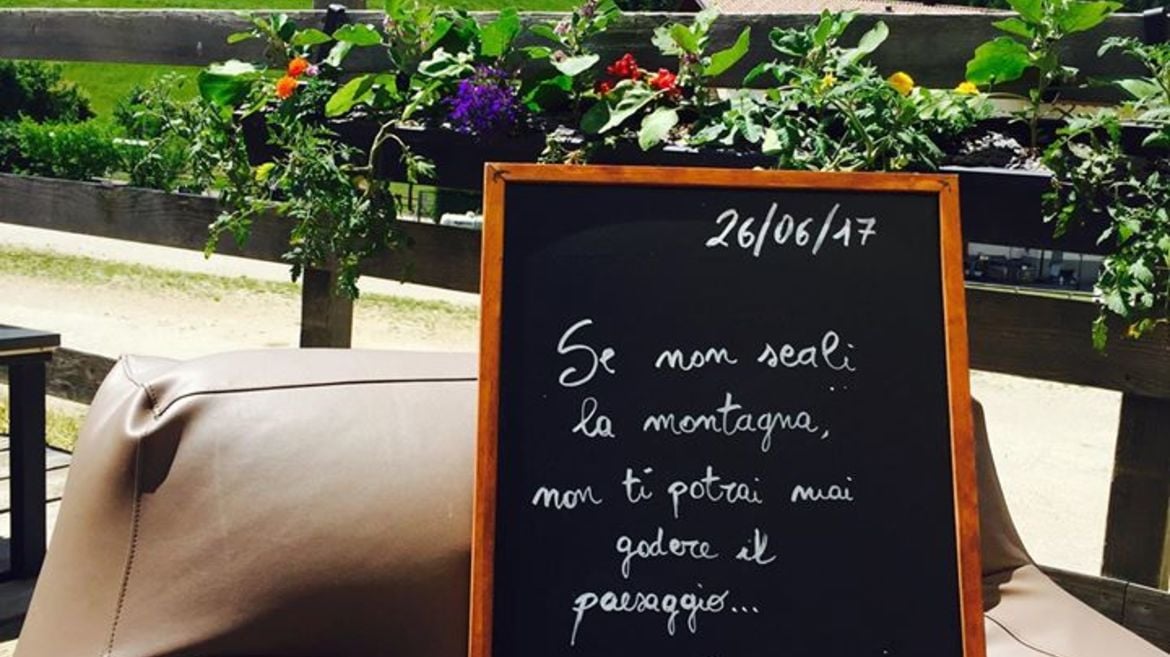 26/06/17
Se non scali
la montagna,
non ti potrai mai
godere il
paesaggio...